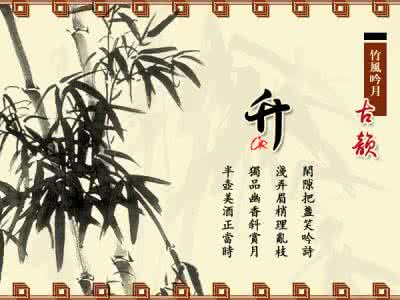 竹風吟月
古韻
升
閑隙把盞笑吟詩
淺弄眉梢理亂枝
獨品幽香斜賞月
半壺美酒正當時